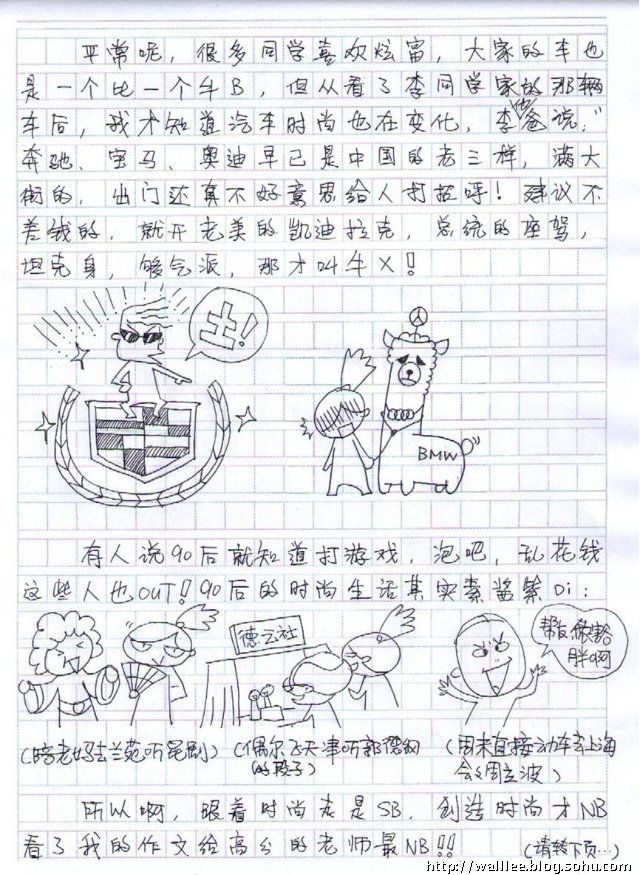 平常呢，很多同学喜欢炫富，大家的车也
是一个比一个牛B，但从看了李同学家的那辆
车后，我才知道汽车时尚也在变化，李他爸说："
奔驰、宝马、奥迪早已是中国的老三样，满大
街的，出门还真不好意思给人打招呼！建议不
差钱的，就开老美的凯迪拉克，总统的座驾，
坦克身，够气派，那才叫牛X！
土！
人
BMW
有人说90后就知道打游戏，泡吧，乱花钱
这些人也OUT！90后的时尚生活其实素酱紫Di：
德云社
帮我做
胖啊
（陪老妈去兰苑听昆剧）
（偶尔飞天津听郭德纲
的段子）
（周末直接动车去上海
会会周立波）
所以啊，跟着时尚走是SB，创造时尚才NB
看了我的作文给高分的老师最NB!!
（请转下页…）
http://walllee.blog.sohu.com